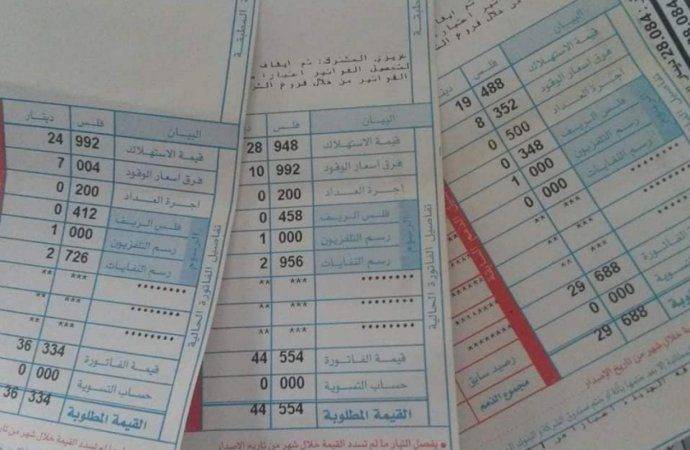 المطبقة
البيان فلس دينار
قيمة الاستهلاك 992 24
فرق أسعار الوقود 004 7
اجرة العداد 200 0
فلس الريف 412 0
رسم التلفزيون 000 1
رسم النفايات 726 2
الرسوم
******** *** **
******** *** **
قيمة الفاتورة 334 36
حساب التسوية 000 0
القيمة المطلوبة 334 36
تفاصيل الفاتورة الحالية
المطبقة
عزيزي المشترك: تم ايقاف
لتحصيل الفواتير اعتبارا
الفواتير من خلال فروع
البيان فلس دينار
قيمة الاستهلاك 948 28
فرق أسعار الوقود 992 10
اجرة العداد 200 0
فلس الريف 458 0
رسم التلفزيون 000 1
رسم النفايات 956 2
الرسوم
******** *** **
******** *** **
قيمة الفاتورة 554 44
حساب التسوية 000 0
القيمة المطلوبة 554 44
تفاصيل الفاتورة الحالية
• يفصل التيار ما لم تسدد القيمة خلال شهر من تاريخ الاصدار
28.084
البيان فلس دينار
قيمة الاستهلاك 488 19
فرق أسعار الوقود 352 8
اجرة العداد 500 0
فلس الريف 348 0
رسم التلفزيون 000 1
رسم النفايات 000 0
29 688
0 000
29 688
رصيد سابق
مجموع الذمم
خلال شهر من تاريخ الإصدار